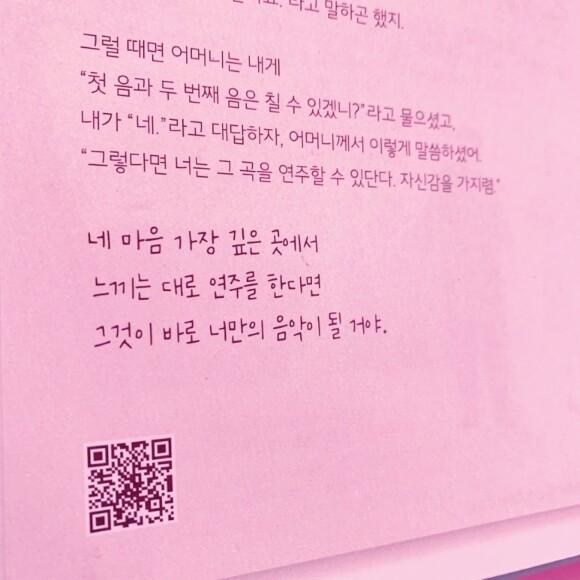 라고 말하곤 했지.
그럴 때면 어머니는 내게
“첫 음과 두 번째 음은 칠 수 있겠니?”라고 물으셨고,
내가 “네.”라고 대답하자, 어머니께서 이렇게 말씀하셨어.
“그렇다면 너는 그 곡을 연주할 수 있단다. 자신감을 가지렴.”
네 마음 가장 깊은 곳에서
느끼는 대로 연주를 한다면
그것이 바로 너만의 음악이 될 거야.